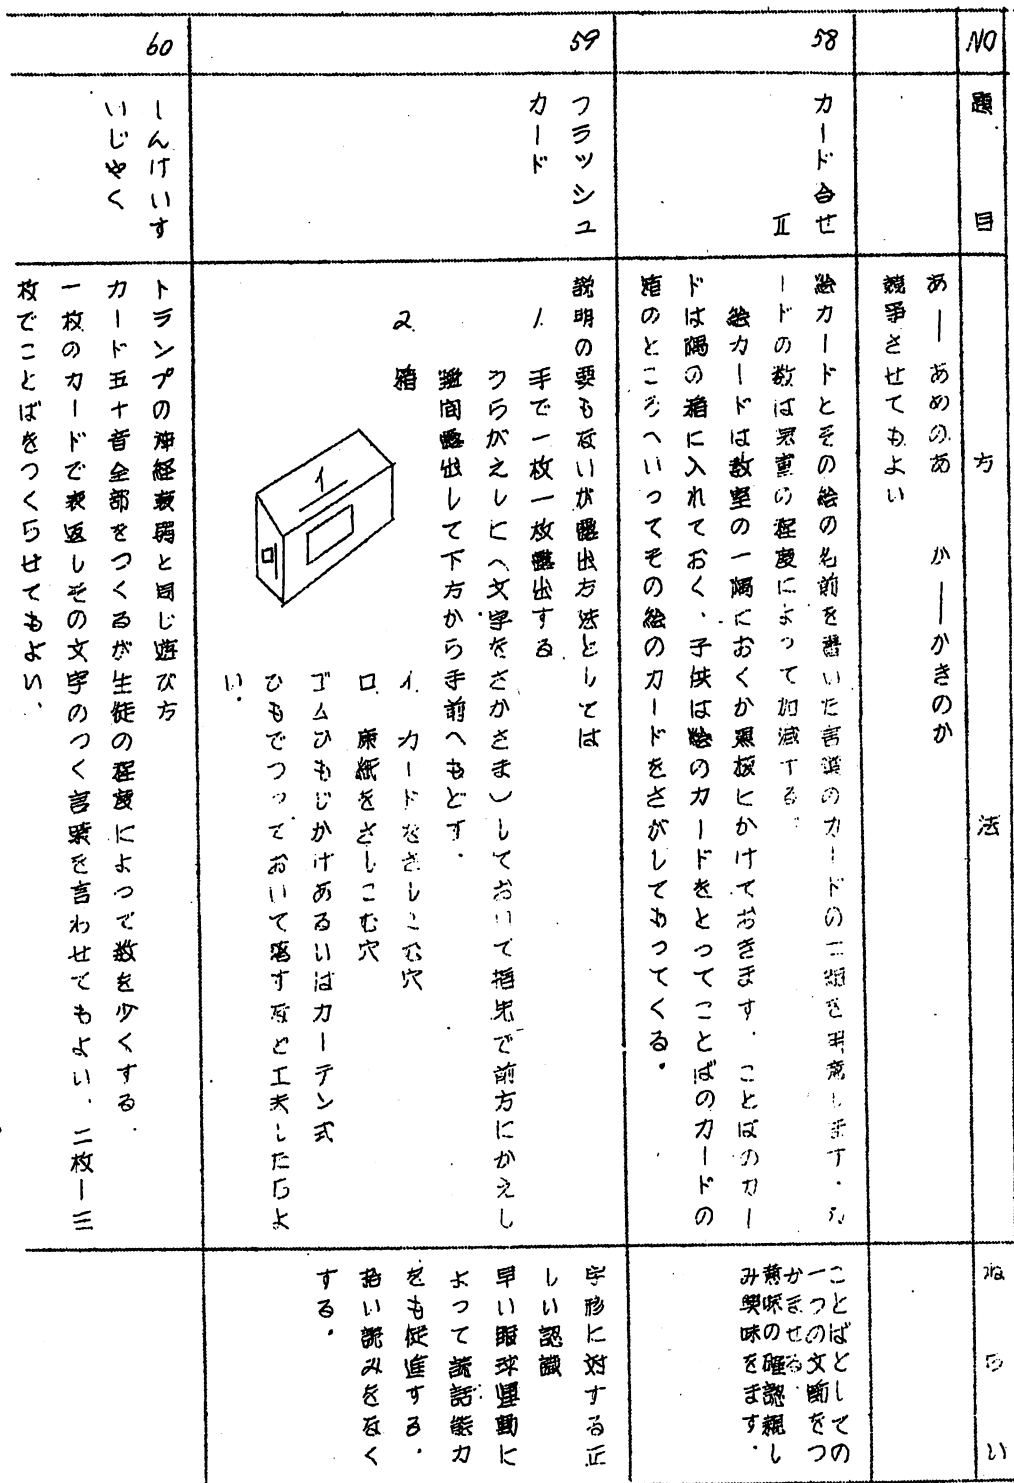 NO
題目
方法
ねらい
あ――あめのあ　か――かきのか
競争させてもよい
58
カード合せ
Ⅱ
絵カードとその絵の名前を書いた言葉のカードの二組を用意します．カ
ードの数は児童の程度によって加減する．
絵カードは教室の一隅におくか黒板にかけておきます．ことばのカー
ドは隅の箱に入れておく．子供は絵のカードをとってことばのカードの
箱のところへいってその絵のカードをさがしてもってくる．
ことばとしての
一つの文節をつ
かませる．
意味の確認親し
み興味をます．
59
フラッシュ
カード
説明の要もないが露出方法としては
1．手で一枚一枚露出する
うらがえしに（文字をさかさま）しておいて指先で前方にかえし
瞬間露出して下方から手前へもどす．
2．箱
1
イ．カードをさしこむ穴
ロ．床紙をさしこむ穴
ゴムひもじかけあるいはカーテン式
ひもでつっておいて落すなど工夫したらよ
い．
字形に対する正
しい認識
早い眼球運動に
よって読話能力
をも促進する．
拾い読みをなく
する．
60
しんけいす
いじゃく
トランプの神経衰弱と同じ遊び方
カード五十音全部をつくるが生徒の程度によって数を少くする．
一枚のカードで表返しその文字のつく言葉を言わせてもよい．二枚―三
枚でことばをつくらせてもよい．